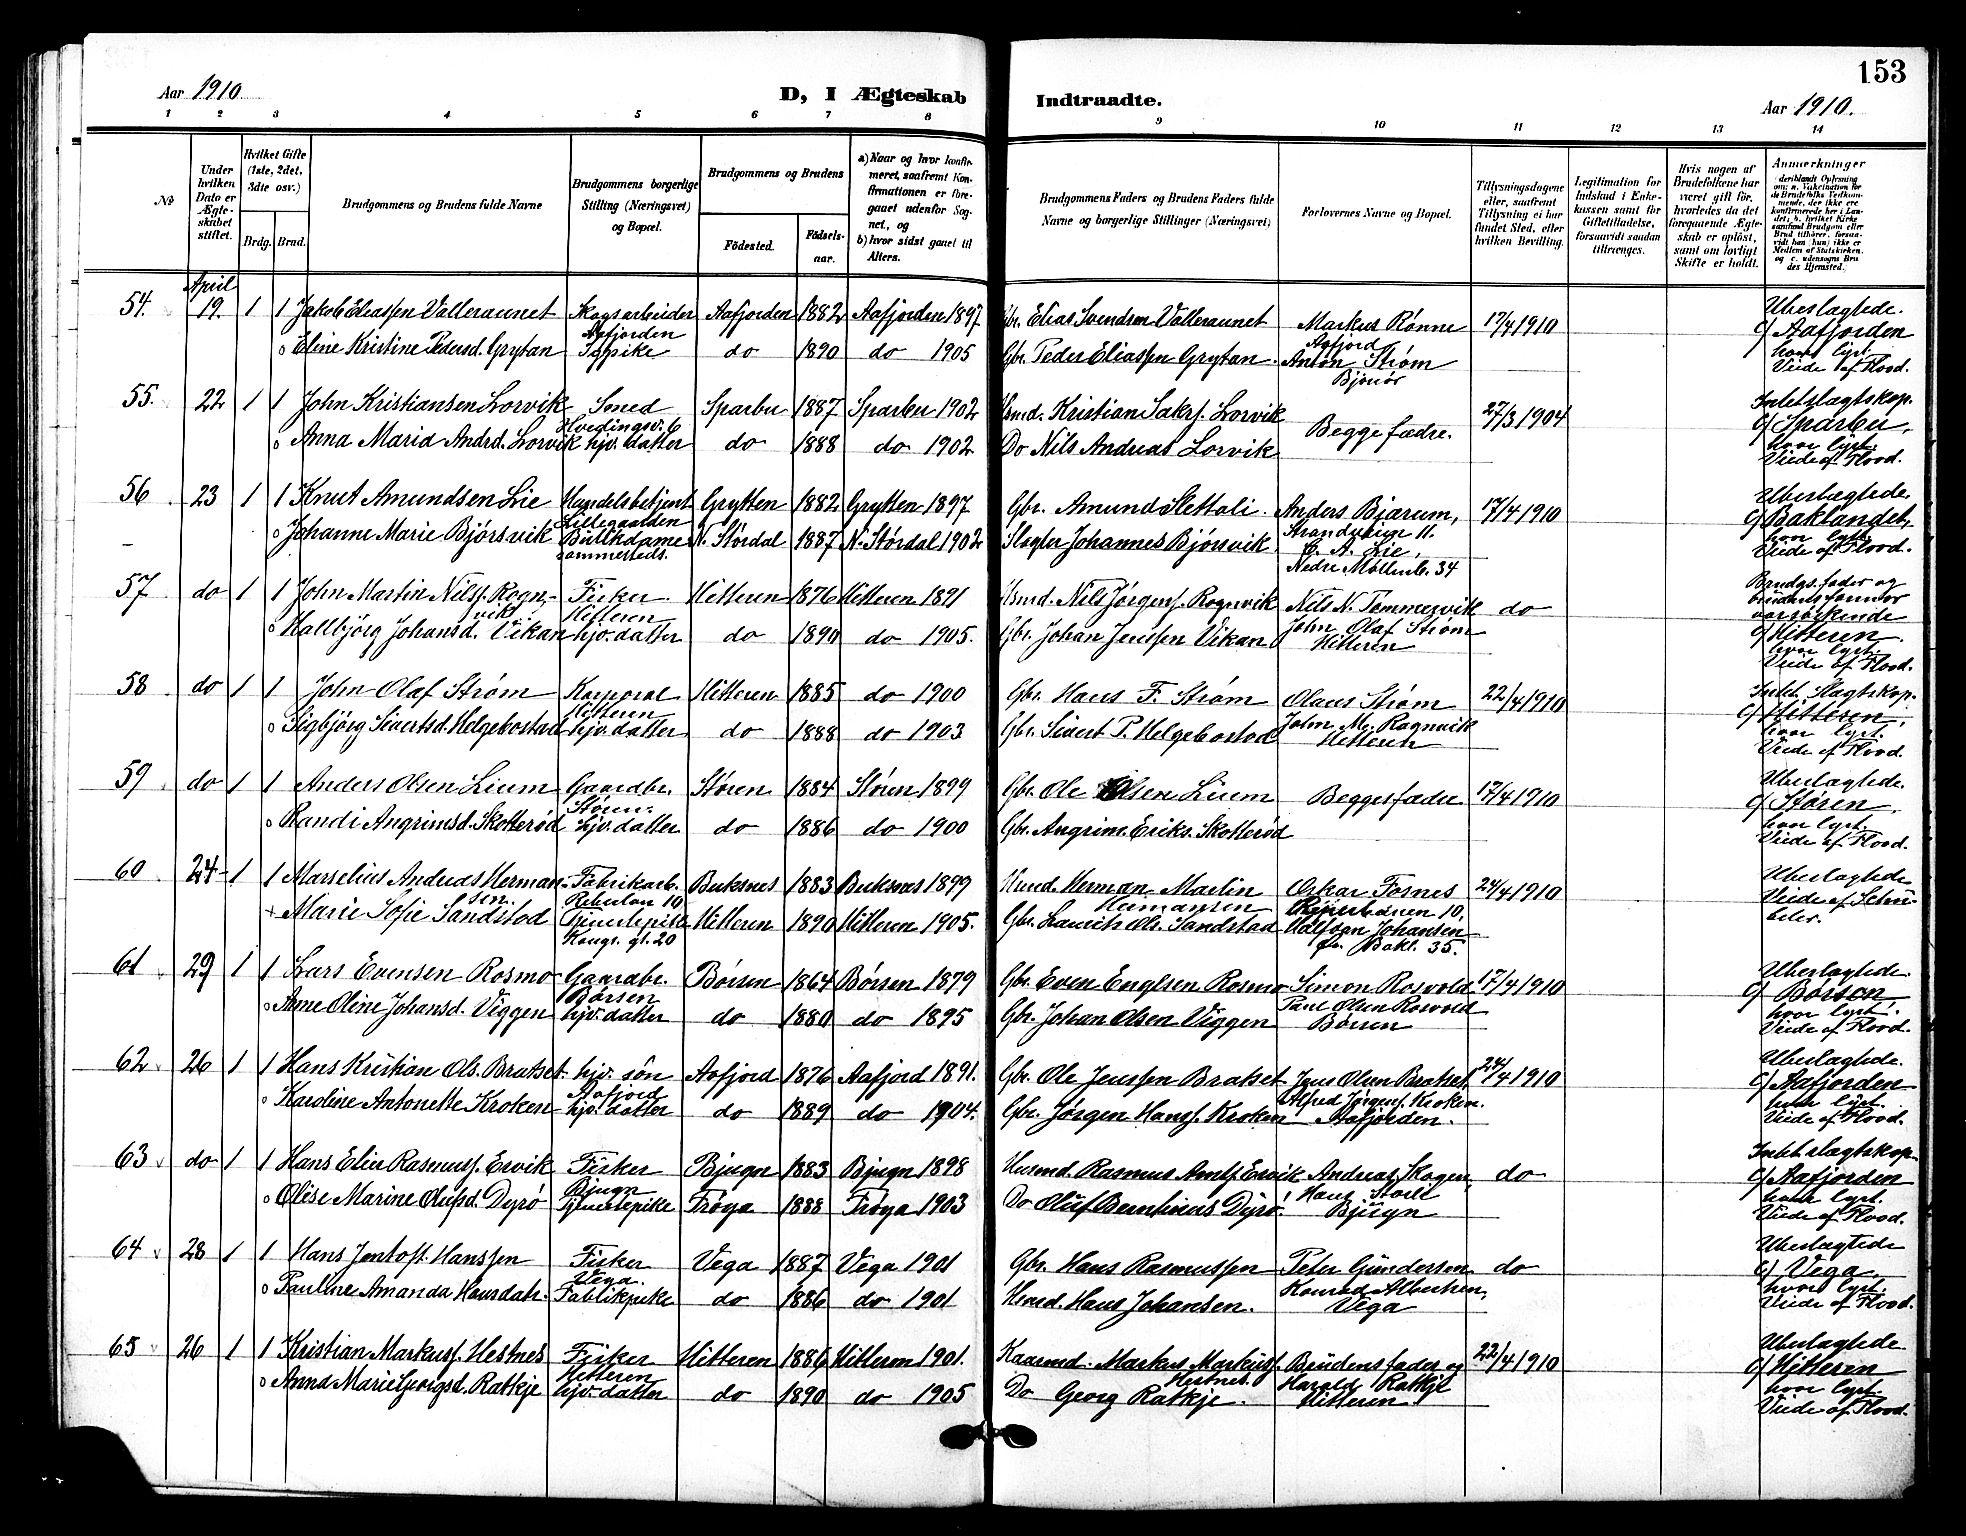 153
Aar 1910.
D, I Ægteskab
Indtraadte.
Aar 1910.
1 2 3 4 5 6 7 8 9 10 11 12 13 14
No
Under hvilken Dato er Ægteskabet stiftet.
Hvilket Gifte (1ste, 2det, 3die osv.)
Brdg. Brud.
Brudgommens og Brudens fulde Navne
Brudgommens borgerlige Stilling (Næringsvei) og Bopæl.
Brudgommens og Brudens
Födested. Födselsaar.
a) Naar og hvor konfirmeret, saafremt Konfirmationen er foregaaet udenfor Sognet, og
b) hvor sidst gaaet til Alters.
Brudgommens Faders og Brudens Faders fulde Navne og borgerlige Stillinger (Næringsvei)
Forlovernes Navne og Bopæl.
Tillysningsdagene eller, saafremt Tillysning ei har fundet Sted, efter hvilken Bevilling.
Legitimation for Indskud i Enkekassen samt for Giftetilladelse, forsaavidt saadan tiltrænges.
Hvis nogen af Brudefolkene har været gift för, hvorledes da det foregaaende Ægteskab er oplöst, samt om lovligt Skifte er holdt.
Anmærkninger
54. April 19. 1 1 Jakob Eliassen Valleraunet Skogsarbeider Aafjorden 1882 Aafjorden 1897 Gbr. Elias Svendsen Valleraunet Markus Rønne 17/4 1910 Ubeslægtede.
Aafjorden Aafjord c/ Aafjorden
o Eline Kristine Pedersd. Grytan Sypike do 1890 do 1905 Gbr. Peder Eliassen Grytan. Anton Strøm hvor lyst.
Bjønør Viede af Flood.
55. 22 1 1 John Kristiansen Lorvik Smed Sparbu 1887 Sparbu 1902 Hsmd. Kristian Sakrs. Lorvik Begge fædre. 27/3 1904 Intet slægtskap.
Hvedingsv. 6 c/ Sparbu,
o Anna Maria Andrd. Lorvik hjv. datter do 1888 do 1902 Do Nils Andreas Lorvik hvor lyst.
Viede af Flood.
56 23 1 1 Knut Amundsen Lie Handelsbetjent Grytten 1882 Grytten 1897 Gbr. Amund Slettali. Anders Bjærum, 17/4 1910 Ubeslægtede.
Lillegaarden Strandveien 11. c/ Baklandet,
o Johanne Marie Bjørsvik Butikdame N. Størdal 1887 N. Størdal 1902 Slagter Johannes Bjørsvik. C. A. Lie, hvor lyst.
sammesteds. Nedre Møllenb. 34 Viede af Flood.
57 do 1 1 John Martin Nilss. Rogn- Fisker Hitteren 1876 Hitteren 1891 Hsmd. Nils Jørgens. Rognvik Nils N. Tømmervik do Brudgs. fader og
vik Hitteren John Olaf Strøm brudens farmor
o Hallbjørg Johansd. Vikan hjv. datter do 1890 do 1905. Gbr. Johan Jenssen Vikan Hitteren var søskende
c/ Hitteren
hvor lyst.
Viede af Flood.
58 do 1 1 John Olaf Strøm Korporal Hitteren 1885 do 1900 Gbr. Hans F. Strøm Olaus Strøm 22/4 1910 Intet slægtskap.
Hitteren John M. Rognvik c/ Hitteren,
o Sigbjørg Sivertsd. Helgebostad hjv. datter do 1888 do 1903 Gbr. Sivert P. Helgebostad Hitteren hvor lyst.
Viede af Flood.
59 do 1 1 Anders Olsen Lium Gaardbr. Støren 1884 Støren 1899 Gbr. Ole Olsen Lium Begges fædre 17/4 1910 Ubeslægtede
Støren. c/ Støren,
o Randi Angrimsd. Skotterød hjv. datter do 1886 do 1900 Gbr. Angrim Eriks. Skotterød hvor lyst.
Viede af Flood.
60 24 1 1 Marselius Andreas Herman- Fabrikarb. Buksnes 1883 Buksnes 1899 Hsmd. Herman Martin Oskar Fosnes 24/4 1910 Ubeslægtede
sen. Hermansen Viede af Schu-
+ Marie Sofie Sandstad Tjenestepike Hitteren 1890 Hitteren 1905. Gbr. Laurits Ols. Sandstad Halfdan Johansen beler.
Kongs. gt. 20 Bakl. 35.
61 29 1 1 Lars Evensen Rosmo Gaardbr. Børsen 1864 Børsen 1879 Gbr. Even Engelsen Rosmo Simon Rosvold 17/4 1910 Ubeslægtede.
Børsen Paul Olsen Rosvold c/ Børsen,
o Anne Oline Johansd. Viggen hjv. datter do 1880 do 1895 Gbr. Johan Olsen Viggen Børsen hvor lyst.
Viede af Flood.
62 26 1 1 Hans Kristian Ols. Bratset hjv. søn Aafjord 1876 Aafjord 1891. Gbr. Ole Jenssen Bratset Jens Olsen Bratset 24/4 1910 Ubeslægtede.
Aafjord Alfred Jørgens. Kroken. c/ Aafjorden
o Karoline Antonette Kroken hjv. datter do 1889 do 1904. Gbr. Jørgen Hanss. Kroken Aafjorden. hvor lyst.
Viede af Flood.
63 do 1 1 Hans Elier Rasmuss. Ervik Fisker Bjugn 1883 Bjugn 1898 Husmd. Rasmus Arntz. Ervik Andreas Skogen, do Intet slægtskap.
Bjugn c/ Aafjorden
o Olise Marine Olufsd. Dyrø Tjenestepike Frøya 1888 Frøya 1903 Do Oluf Bernhinus Dyrø Bjugn hvor lyst.
Viede af Flood.
64 28 1 1 Hans Jentoft Hanssen Fisker Vega 1887 Vega 1901 Gbr. Hans Rasmussen Peter Gundersen do Ubeslægtede
Vega. Konrad Albertsen, c/ Vega,
o Pauline Amanda Hansdatr. Fabrikpike do 1886 do 1901 Hsmd. Hans Johansen. Vega hvor lyst.
Viede af Flood.
65 26 1 1 Kristian Markuss. Hestnes Fisker Hitteren 1886 Hitteren 1901. Kaarmd. Markus Markuss. Brudens fader og 22/4 1910 Ubeslægtede
Hitteren Hestnes. Harald Ratkje c/ Hitteren
o Anna Marie Georgsd. Ratkje hjv. datter do 1890 do 1905 Do Georg Ratkje. Hitteren hvor lyst.
Viede af Flood.